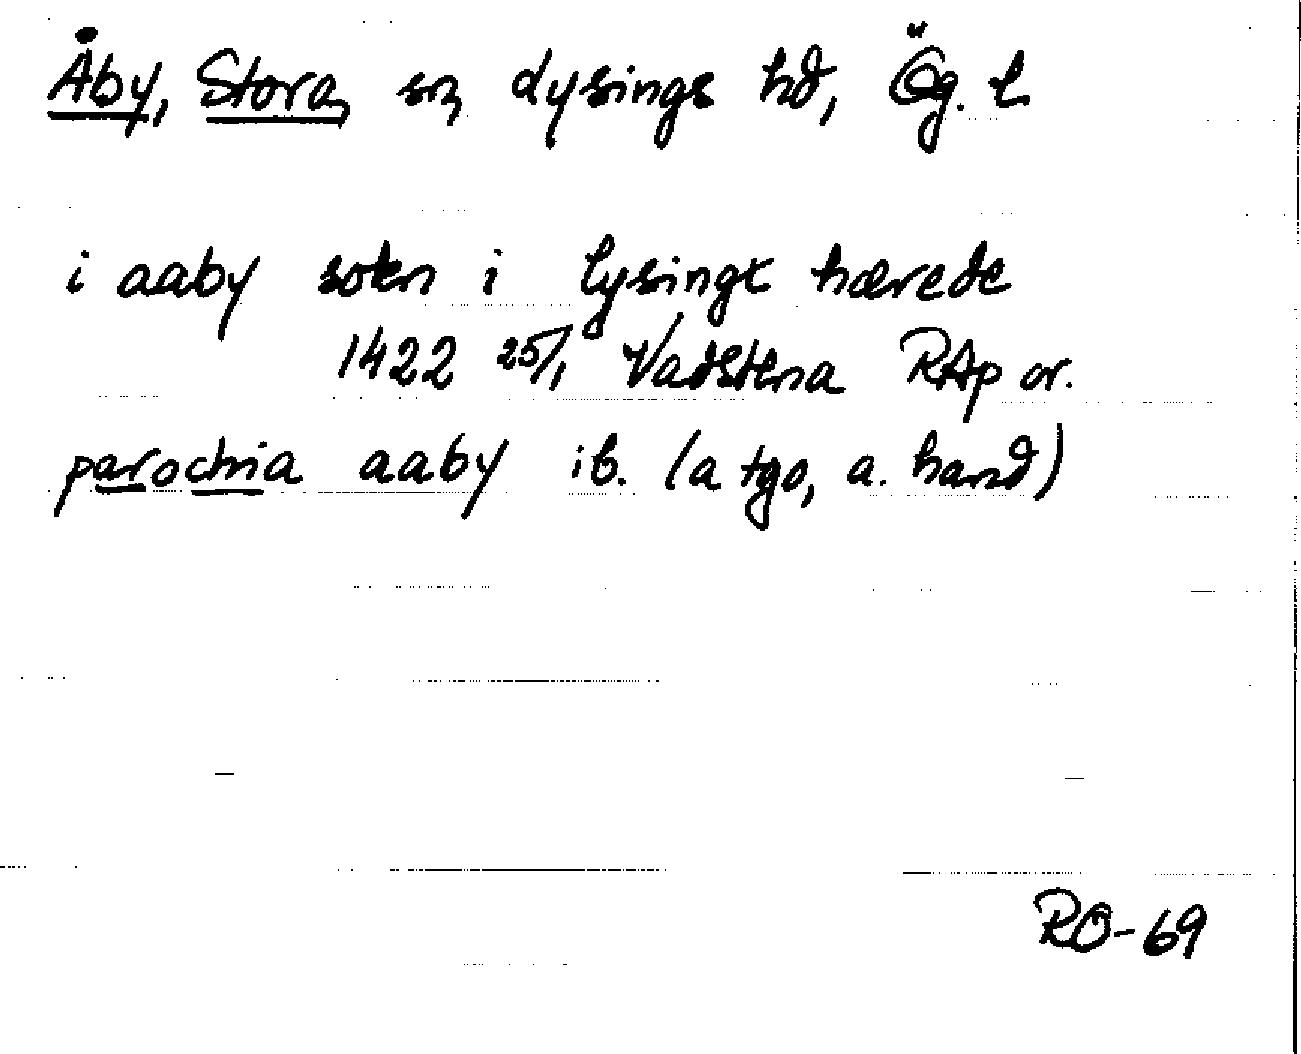 Åby, Stora, sn, Lysings hd, Ög. l
i aaby sokn i lysingx hærede
1422 25/1 Vadstena RAp or.
parochia aaby ib. (a tgo, a. hand)
RO-69